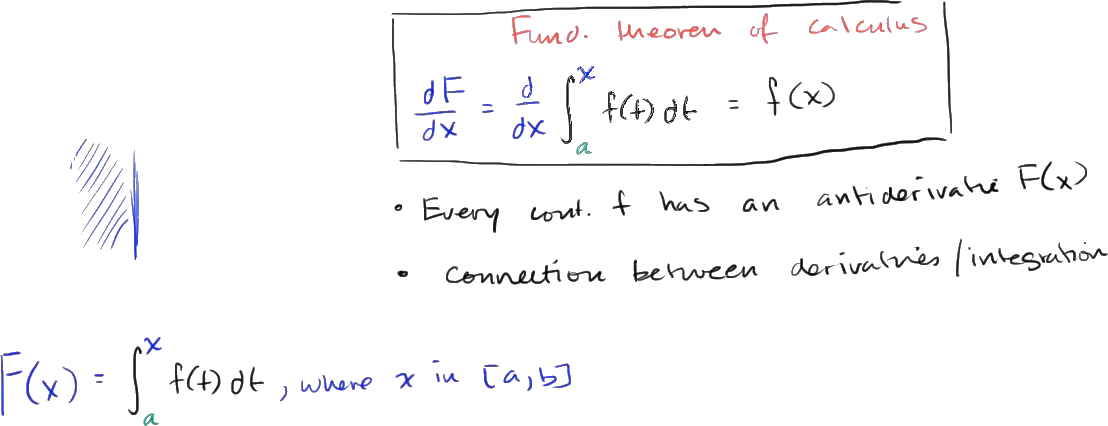 Fund. theorem of calculus
dF/dx = d/dx ∫ₐˣ f(t) dt = f(x)
• Every cont. f has an antiderivative F(x)
• connection between derivatives/integration
F(x) = ∫ₐˣ f(t) dt, where x in [a,b]